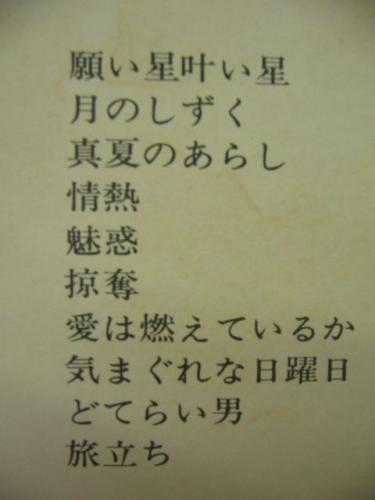 願い星叶い星
月のしずく
真夏のあらし
情熱
魅惑
掠奪
愛は燃えているか
気まぐれな日曜日
どてらい男
旅立ち